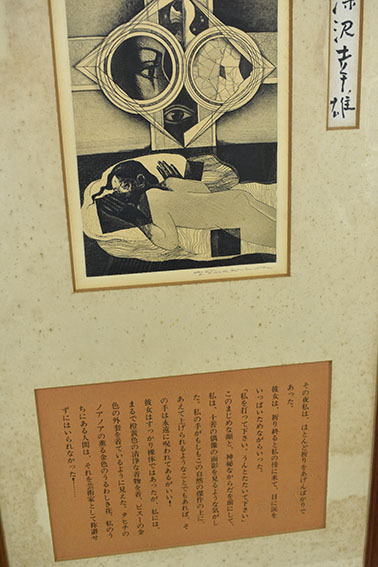 深沢幸雄
その夜私は、ほとんど祈りをあげんばかりで
あった。
彼女は、祈り終ると私の傍に来て、目に涙を
いっぱいためながらいった。
「私を打って下さい、うんとたたいて下さい」
このまじめな顔と、神秘なからだを前にして、
私は、十善の偶像の面影を見るような気がし
た。私の手がもしもこの自然の傑作の上に、
あえて上げられるようなことでもあれば、そ
の手は永遠に呪われてあるがいい！
彼女はすっかり裸体ではあったが、私には、
まるで橙黄色の清浄な着物を着、ビスーの金
色の外套を着ているように見えた。タヒチの
ノアノアの薫る金色のうるわしき花、私のう
ちにある人間は、それを芸術家として称讃せ
ずにはいられなかった！──